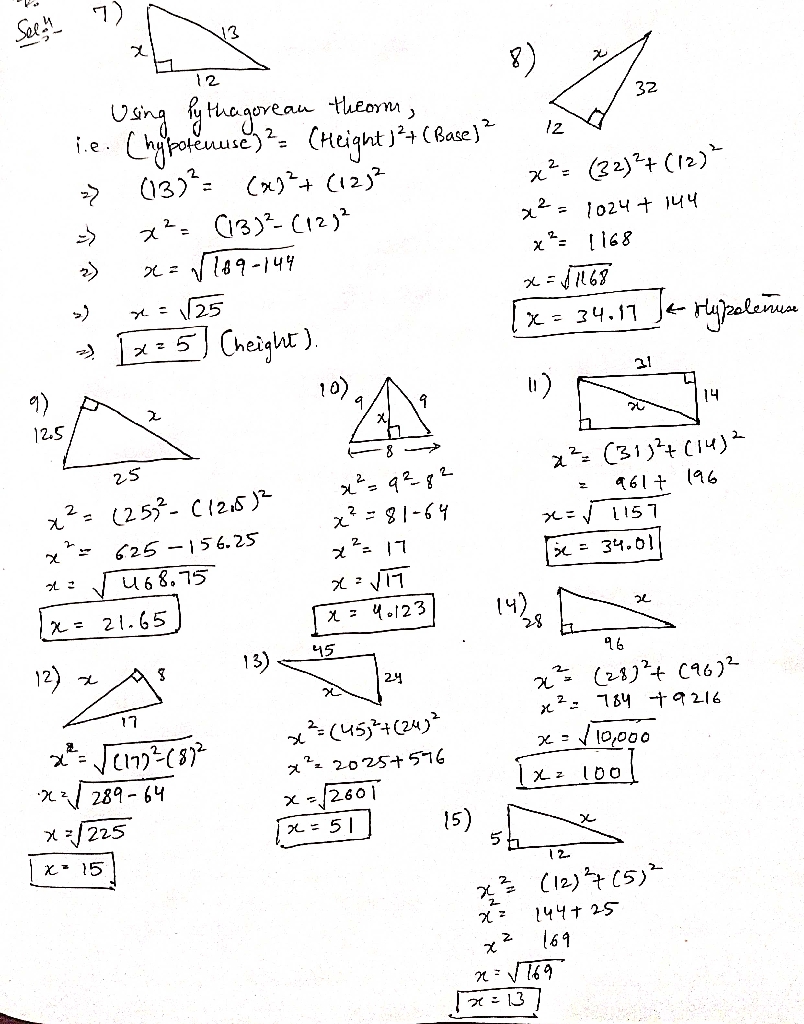 Sol:-
7)
x
13
12
Using Pythagorean theorm,
i.e. (hypotenuse)² = (Height)² + (Base)²
=> (13)² = (x)² + (12)²
=> x² = (13)² - (12)²
=> x = √189-144
=> x = √25
=> x = 5 (height).
8)
x
32
12
x² = (32)² + (12)²
x² = 1024 + 144
x² = 1168
x = √1168
x = 34.17 ← Hypotenuse
9)
12.5
x
25
x² = (25)² - (12.5)²
x² = 625 - 156.25
x = √468.75
x = 21.65
10)
9
9
x
8
x² = 9² - 8²
x² = 81-64
x² = 17
x = √17
x = 4.123
11)
31
14
x
x² = (31)² + (14)²
= 961 + 196
x = √1157
x = 34.01
12)
x
8
17
x² = √(17)²-(8)²
x = √289-64
x = √225
x = 15
13)
45
24
x
x² = (45)² + (24)²
x² = 2025 + 576
x = √2601
x = 51
14)
28
x
96
x² = (28)² + (96)²
x² = 784 + 9216
x = √10,000
x = 100
15)
5
x
12
x² = (12)² + (5)²
x² = 144 + 25
x² 169
x = √169
x = 13